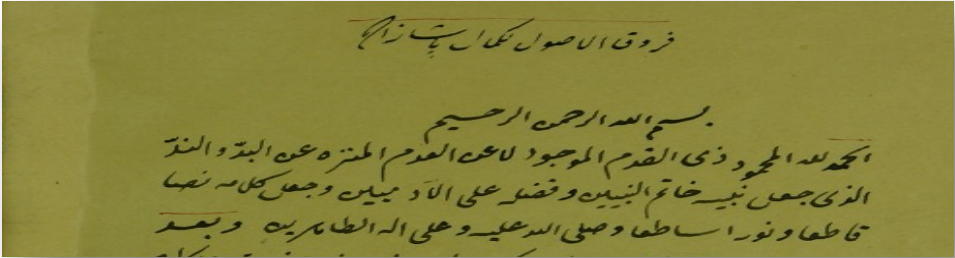 فروق الاصول لكمال پاشازاده
بسم الله الرحمن الرحيم
الحمد لله المحمود ذى القدم الموجود لا عن العدم المنزه عن البدّ و الندّ
الذى جعل نبيه خاتم النبيين و فضله على الآدميين و جعل كلامه نصا
قاطعا و نورا ساطعا و صلى الله عليه و على اله الطاهرين و بعد